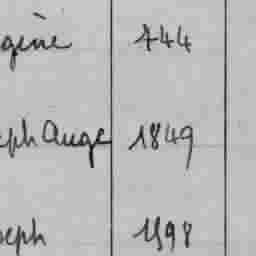 gène 744
eph Ange 1849
seph 1898